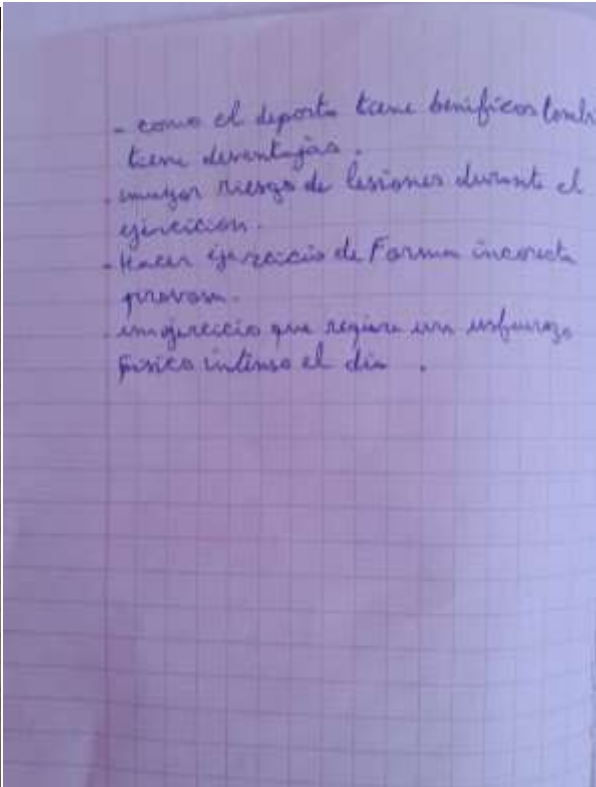 - como el deporte tiene benificos tambi
tiene desventajas.
- mayor riesgo de lesiones durante el
ejercicion.
- Hacer ejercicio de Forma incorecta
provosa.
- un ejercicio que regiere un esfuerzo
fisico intenso el dia .